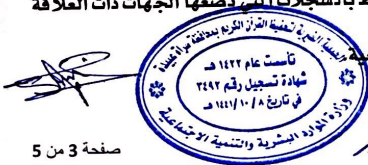 بالسجلات التي تضعها الجهات ذات العلاقة
الجمعية الخيرية لتحفيظ القرآن الكريم بمحافظة
تأسست عام ١٤٢٢ هـ
شهادة تسجيل رقم ٣٤٩٢
في تاريخ ١٤٤١/١٠/٨ هـ
وزارة الموارد البشرية والتنمية الاجتماعية
صفحة 3 من 5